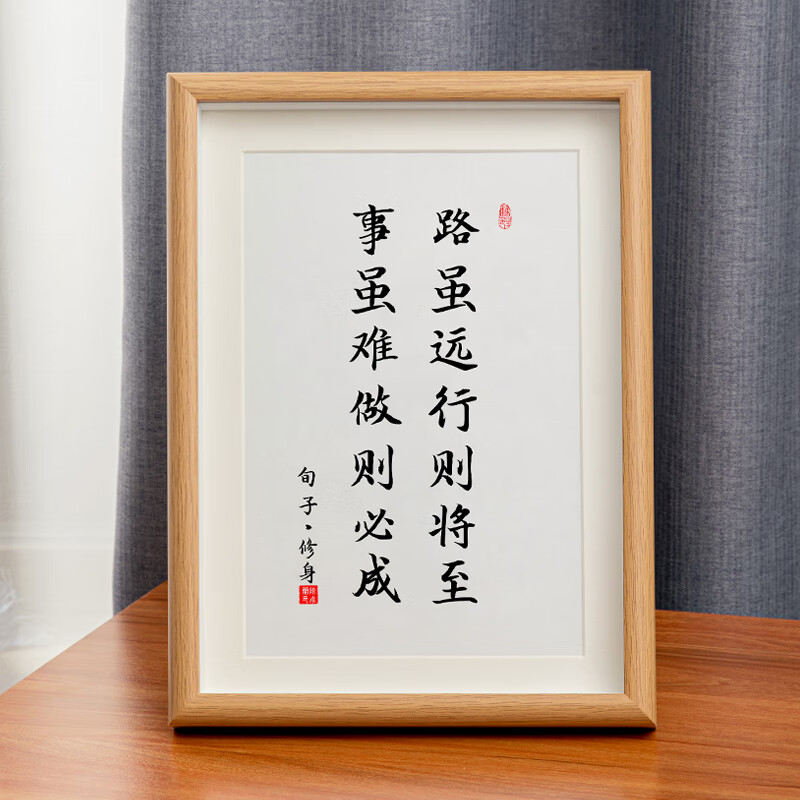 路虽远行则将至
事虽难做则必成
旬子·修身